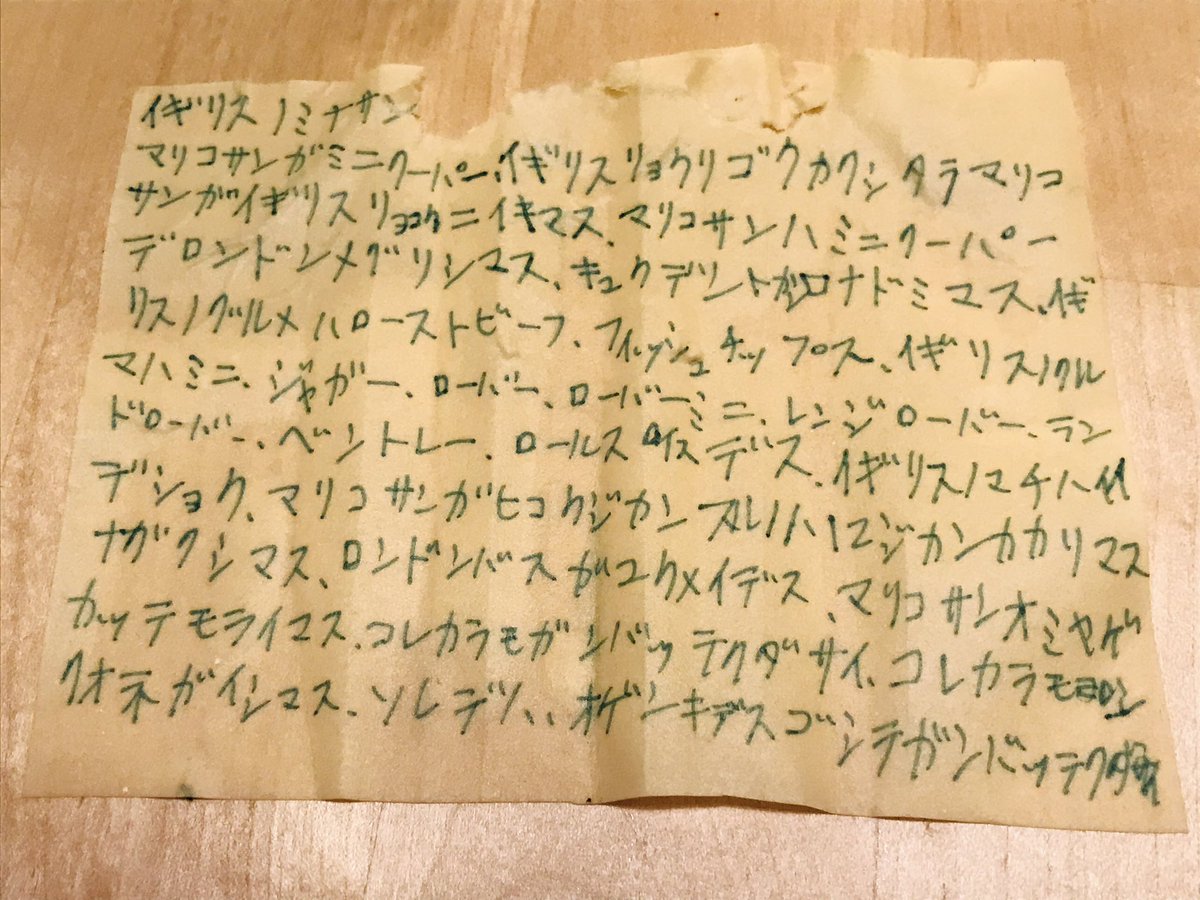 イギリスノミナサン
マリコサンガミニクーパー、イギリスリョウリゴウカクシタラマリコ
サンガイギリスリョコウニイキマス、マリコサンハミニクーパー
デロンドンメグリシマス、キュウデリントガロナドミマス、イギ
リスノグルメハローストビーフ、フィッシュチップス、イギリスノクル
マハミニ、ジャガー、ローバー、ローバーミニ、レンジローバー、ラン
ドローバー、ベントレー、ロールスロイスデス、イギリスノマチハ
デショウ、マリコサンガヒコウジカンスルノハ12ジカンカカリマス
ナガクシマス、ロンドンバスガユウメイデス、マリコサンオミヤゲ
カッテモライマス、コレカラモガンバッテクダサイ、コレカラモ
クオネガイシマス、ソレデワ、、オゲンキデスゴシテガンバッテクダ